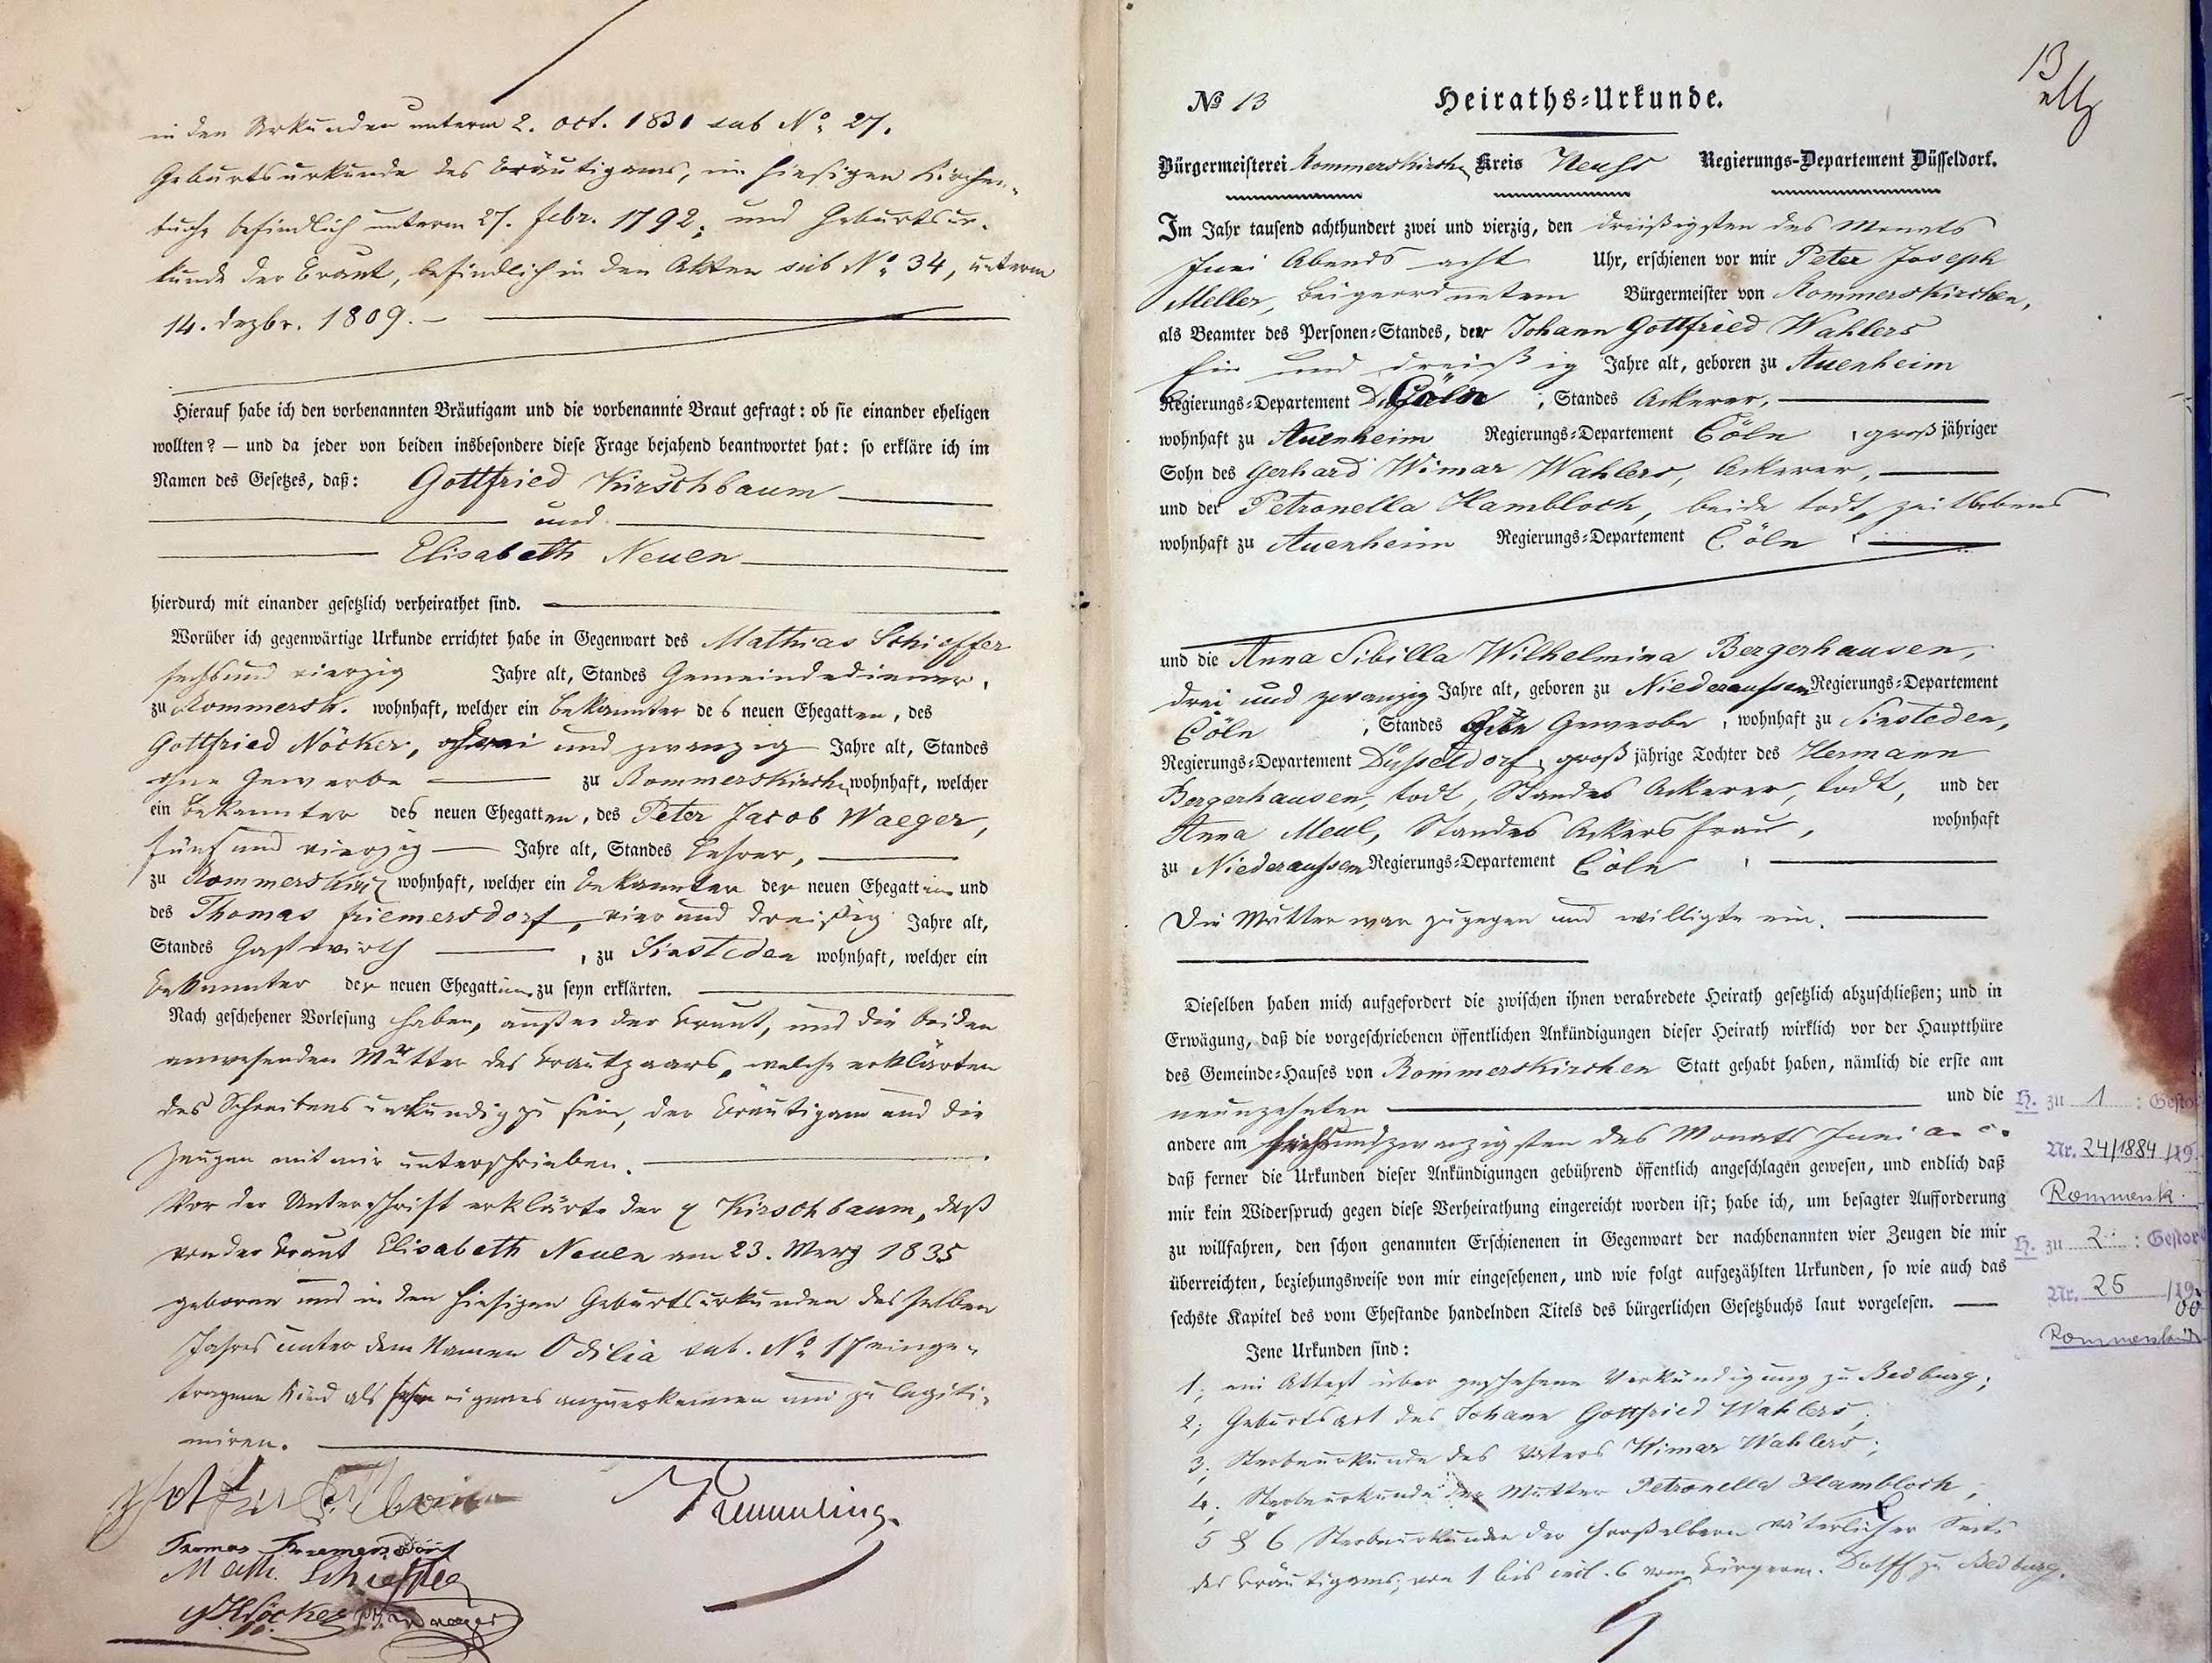 in den Urkunden unterm 2. Oct. 1831 sub No. 27.
Geburtsurkunde des Bräutigams, im hiesigen Kirchen-
buche befindlich unterm 27. Febr. 1792; und Geburtsur-
kunde der Braut, befindlich in den Akten sub No. 34, unterm
14. Dezbr. 1809. —
Hierauf habe ich den vorbenannten Bräutigam und die vorbenannte Braut gefragt: ob sie einander eheligen
wollten? — und da jeder von beiden insbesondere diese Frage bejahend beantwortet hat: so erkläre ich im
Namen des Gesetzes, daß: Gottfried Kirschbaum
und
Elisabeth Neuen
hierdurch mit einander gesetzlich verheirathet sind.
Worüber ich gegenwärtige Urkunde errichtet habe in Gegenwart des Mathias Schieffer
sechsund vierzig Jahre alt, Standes Gemeindediener,
zu Rommersk. wohnhaft, welcher ein bekannter des neuen Ehegatten, des
Gottfried Nöcker, und zwanzig Jahre alt, Standes
ohne Gewerbe zu Rommerskirchen wohnhaft, welcher
ein bekannter des neuen Ehegatten, des Peter Jacob Waeger,
fünf und vierzig Jahre alt, Standes Lehrer,
zu Rommerskirch wohnhaft, welcher ein bekannter der neuen Ehegattin und
des Thomas Friemersdorf, vier und dreißig Jahre alt,
Standes Gastwirth, zu Sinsteden wohnhaft, welcher ein
bekannter der neuen Ehegattin zu seyn erklärten.
Nach geschehener Vorlesung haben, außer der Braut, und die beiden
anwesenden Mütter des Brautpaars, welche erklärten
des Schreibens unkundig zu sein, der Bräutigam und die
Zeugen mit mir unterschrieben.
Vor der Unterschrift erklärte der Kirschbaum, daß
von der Braut Elisabeth Neuen am 23. Merz 1835
geboren und in den hiesigen Geburtsurkunden desselben
Jahres unter dem Namen Odilia sub. No. 17 einge-
tragene Kind als eigenes anzuerkennen und zu legiti-
miren.
Kremmling.
Thomas Friemersdorf
Math. Schieffer
G Nöcker PJ Waeger
13
No 13 Heiraths-Urkunde.
Bürgermeisterei Rommerskirchen Kreis Neuss Regierungs-Departement Düsseldorf.
Im Jahr tausend achthundert zwei und vierzig, den dreißigsten des Monats
Juni Abends acht Uhr, erschienen vor mir Peter Joseph
Meller, Beigeordnetem Bürgermeister von Rommerskirchen,
als Beamter des Personen-Standes, der Johann Gottfried Wahlers
Ein und dreißig Jahre alt, geboren zu Auenheim
Regierungs-Departement Cöln, Standes Ackerer,
wohnhaft zu Auenheim Regierungs-Departement Cöln, großjähriger
Sohn des Gerhard Wimar Wahlers, Ackerer,
und der Petronella Hambloch, beide todt, zeitlebens
wohnhaft zu Auenheim Regierungs-Departement Cöln
und die Anna Sibilla Wilhelmina Bergerhausen,
drei und zwanzig Jahre alt, geboren zu Niederaussem Regierungs-Departement
Cöln, Standes ohne Gewerbe, wohnhaft zu Sinsteden,
Regierungs-Departement Düsseldorf, großjährige Tochter des Hermann
Bergerhausen, todt, Standes Ackerer, todt, und der
Anna Meul, Standes Ackersfrau, wohnhaft
zu Niederaussem Regierungs-Departement Cöln,
Die Mutter war zugegen und willigte ein.
Dieselben haben mich aufgefordert die zwischen ihnen verabredete Heirath gesetzlich abzuschließen; und in
Erwägung, daß die vorgeschriebenen öffentlichen Ankündigungen dieser Heirath wirklich vor der Hauptthüre
des Gemeinde-Hauses von Rommerskirchen Statt gehabt haben, nämlich die erste am
neunzehnten und die
andere am sechsundzwanzigsten des Monats Juni a. c.
daß ferner die Urkunden dieser Ankündigungen gebührend öffentlich angeschlagen gewesen, und endlich daß
mir kein Widerspruch gegen diese Verheirathung eingereicht worden ist; habe ich, um besagter Aufforderung
zu willfahren, den schon genannten Erschienenen in Gegenwart der nachbenannten vier Zeugen die mir
überreichten, beziehungsweise von mir eingesehenen, und wie folgt aufgezählten Urkunden, so wie auch das
sechste Kapitel des vom Ehestande handelnden Titels des bürgerlichen Gesetzbuchs laut vorgelesen.
Jene Urkunden sind:
1, ein Attest über geschehene Verkündigung zu Bedburg;
2, Geburtsact des Johann Gottfried Wahlers;
3, Sterbeurkunde des Vaters Wimar Wahlers;
4. Sterbeurkunde der Mutter Petronella Hambloch;
5 & 6 Sterbeurkunden der Großeltern väterlicher Seits
des Bräutigams; von 1 bis incl. 6 vom Bürgerm. zu Bedburg.
H. zu 1 : Gestor
Nr. 24/1884 /19
Rommersk.
H. zu 2 : Gestor
Nr. 25 /19
Rommersk